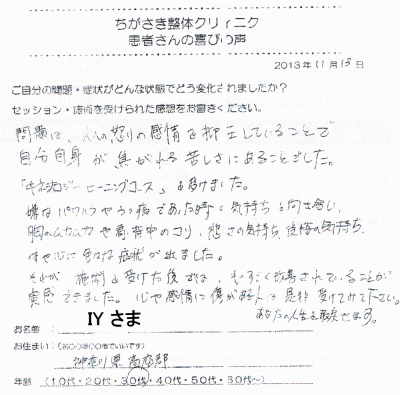 ちがさき整体クリィニク
患者さんの喜びの声
2013年11月13日
ご自分の問題・症状がどんな状態でどう変化されましたか？
セッション・施術を受けられた感想をお書きください。
問題は、人への怒りの感情を抑圧していることで
自分自身が焦がれる苦しさにあることでした。
「キネシオロジー ヒーリングコース」を受けました。
嫌なパワハラやうつ病であった時の気持ちと向き合い、
胸のムカムカや肩背中のコリ、怒りの気持ち、後悔の気持ち、
体や心に色々な症状が出ました。
それが施術を受けた後では、ものすごく改善されていることが
実感できました。心や感情に傷がある人は是非受けてみて下さい。
あなたの人生も変えられます。
お名前： IYさま
お住まい：（あ〇〇市〇〇市でいいです）
神奈川県高座郡
年齢（10代・20代・30代・40代・50代・60代～）